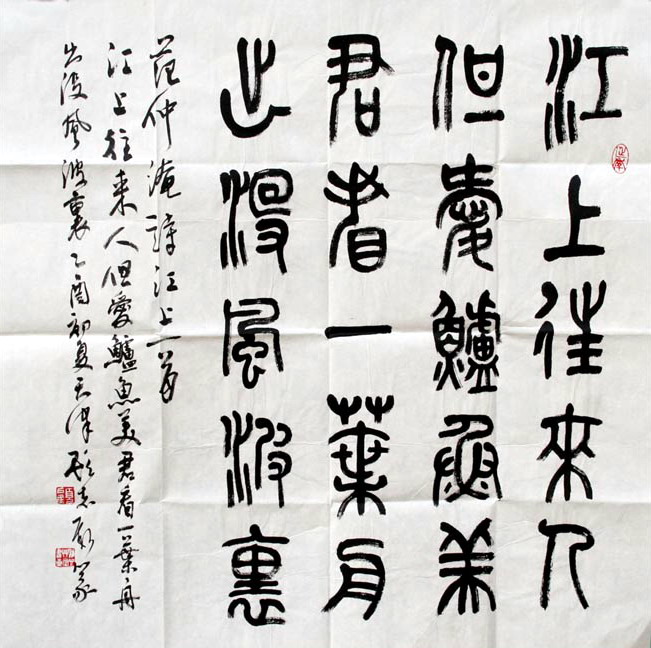 江上往來人
但愛鱸魚美
君看一葉舟
出沒風波裏
范仲淹詩江上一首
江上往來人但愛鱸魚美君看一葉舟
出沒風波裏乙酉初夏天津篆